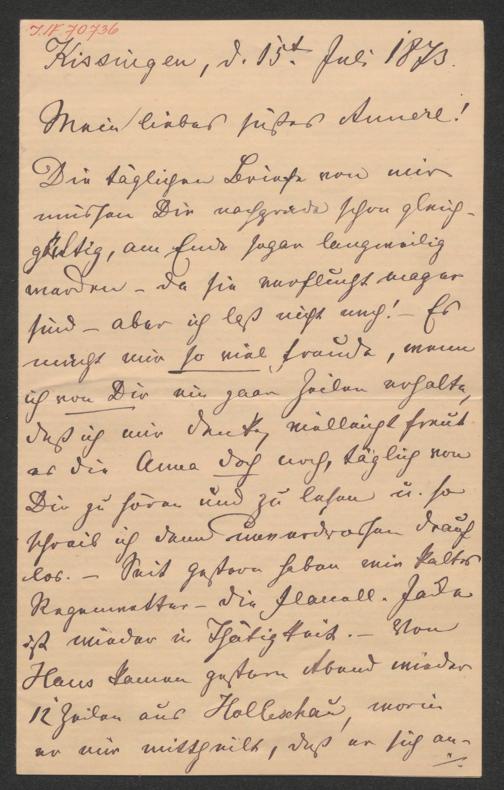 I.N. 70736
Kissingen, d. 15t Juli 1873.
Mein liebes süßes Annerl!
Die täglichen Briefe von mir
müssen Dir nachgerade schon gleich-
gültig, am Ende sogar langweilig
werden – da sie verflucht mager
sind – aber ich laß nicht nach! – Es
macht mir so viel Freude, wenn
ich von Dir ein paar Zeilen erhalte,
daß ich mir denke, vielleicht freut
es die Anna doch noch, täglich von
Dir zu hören und zu lesen u. so
schreib ich denn unverdrossen drauf
los. – Seit gestern haben wir kaltes
Regenwetter – die Flanell-Jacke
ist wieder in Thätigkeit. – Von
Hans kamen gestern Abend wieder
12 Zeilen aus Holleschau, worin
er mir mittheilt, daß er sich an-